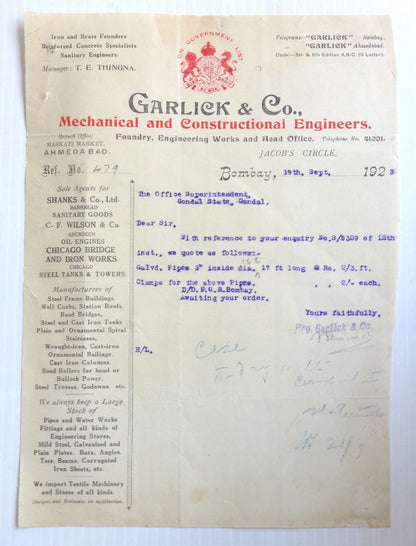 Iron and Brass Founders
Reinforced Concrete Specialists
Sanitary Engineers.
Manager: T. E. THINGNA.
ON GOVERNMENT LIST
Telegrams: "GARLICK" Bombay,
"GARLICK" Ahmedabad.
Code:—5th & 6th Edition A.B.C. (5 Letter).
GARLICK & Co.,
Mechanical and Constructional Engineers.
Foundry, Engineering Works and Head Office.
Telephone No. 41001.
Branch Office:
MASKATI MARKET,
AHMEDABAD.
JACOB'S CIRCLE,
Ref. No. 479
Bombay, 19th Sept. 192
Sole Agents for
SHANKS & Co., Ltd
BARRHEAD
SANITARY GOODS
C. F. WILSON & Co.
ABERDEEN
OIL ENGINES
CHICAGO BRIDGE
AND IRON WORKS.
CHICAGO
STEEL TANKS & TOWERS.
Manufacturers of
Steel Frame Buildings.
Well Curbs, Station Roofs.
Road Bridges,
Steel and Cast Iron Tanks
Plain and Ornamental Spiral
Staircases,
Wrought-iron, Cast-iron
Ornamental Railings.
Cast Iron Columns.
Road Rollers for hand or
Bullock Power.
Steel Trusses. Godowns. etc.
We always keep a Large
Stock of
Pipes and Water Works
Fittings and all kinds of
Engineering Stores,
Mild Steel, Galvanized and
Plain Plates. Bars. Angles.
Tees. Beams. Corrugated
Iron Sheets, etc.
We import Textile Machinery
and Stores of all kinds.
Designs and Estimates on Application.
The Office Superintendent,
Gondal State, Gondal,
Dear Sir,
With reference to your enquiry No.S/5329 of 12th
inst., we quote as follows:-
Galvd. Pipes 3" inside dia, 17 ft long @ Rs. 2/3 ft.
Clamps for the above Pipes, ,, 2/- each.
Awaiting your order,
Yours faithfully,
Pro. Garlick & Co.
H/L.